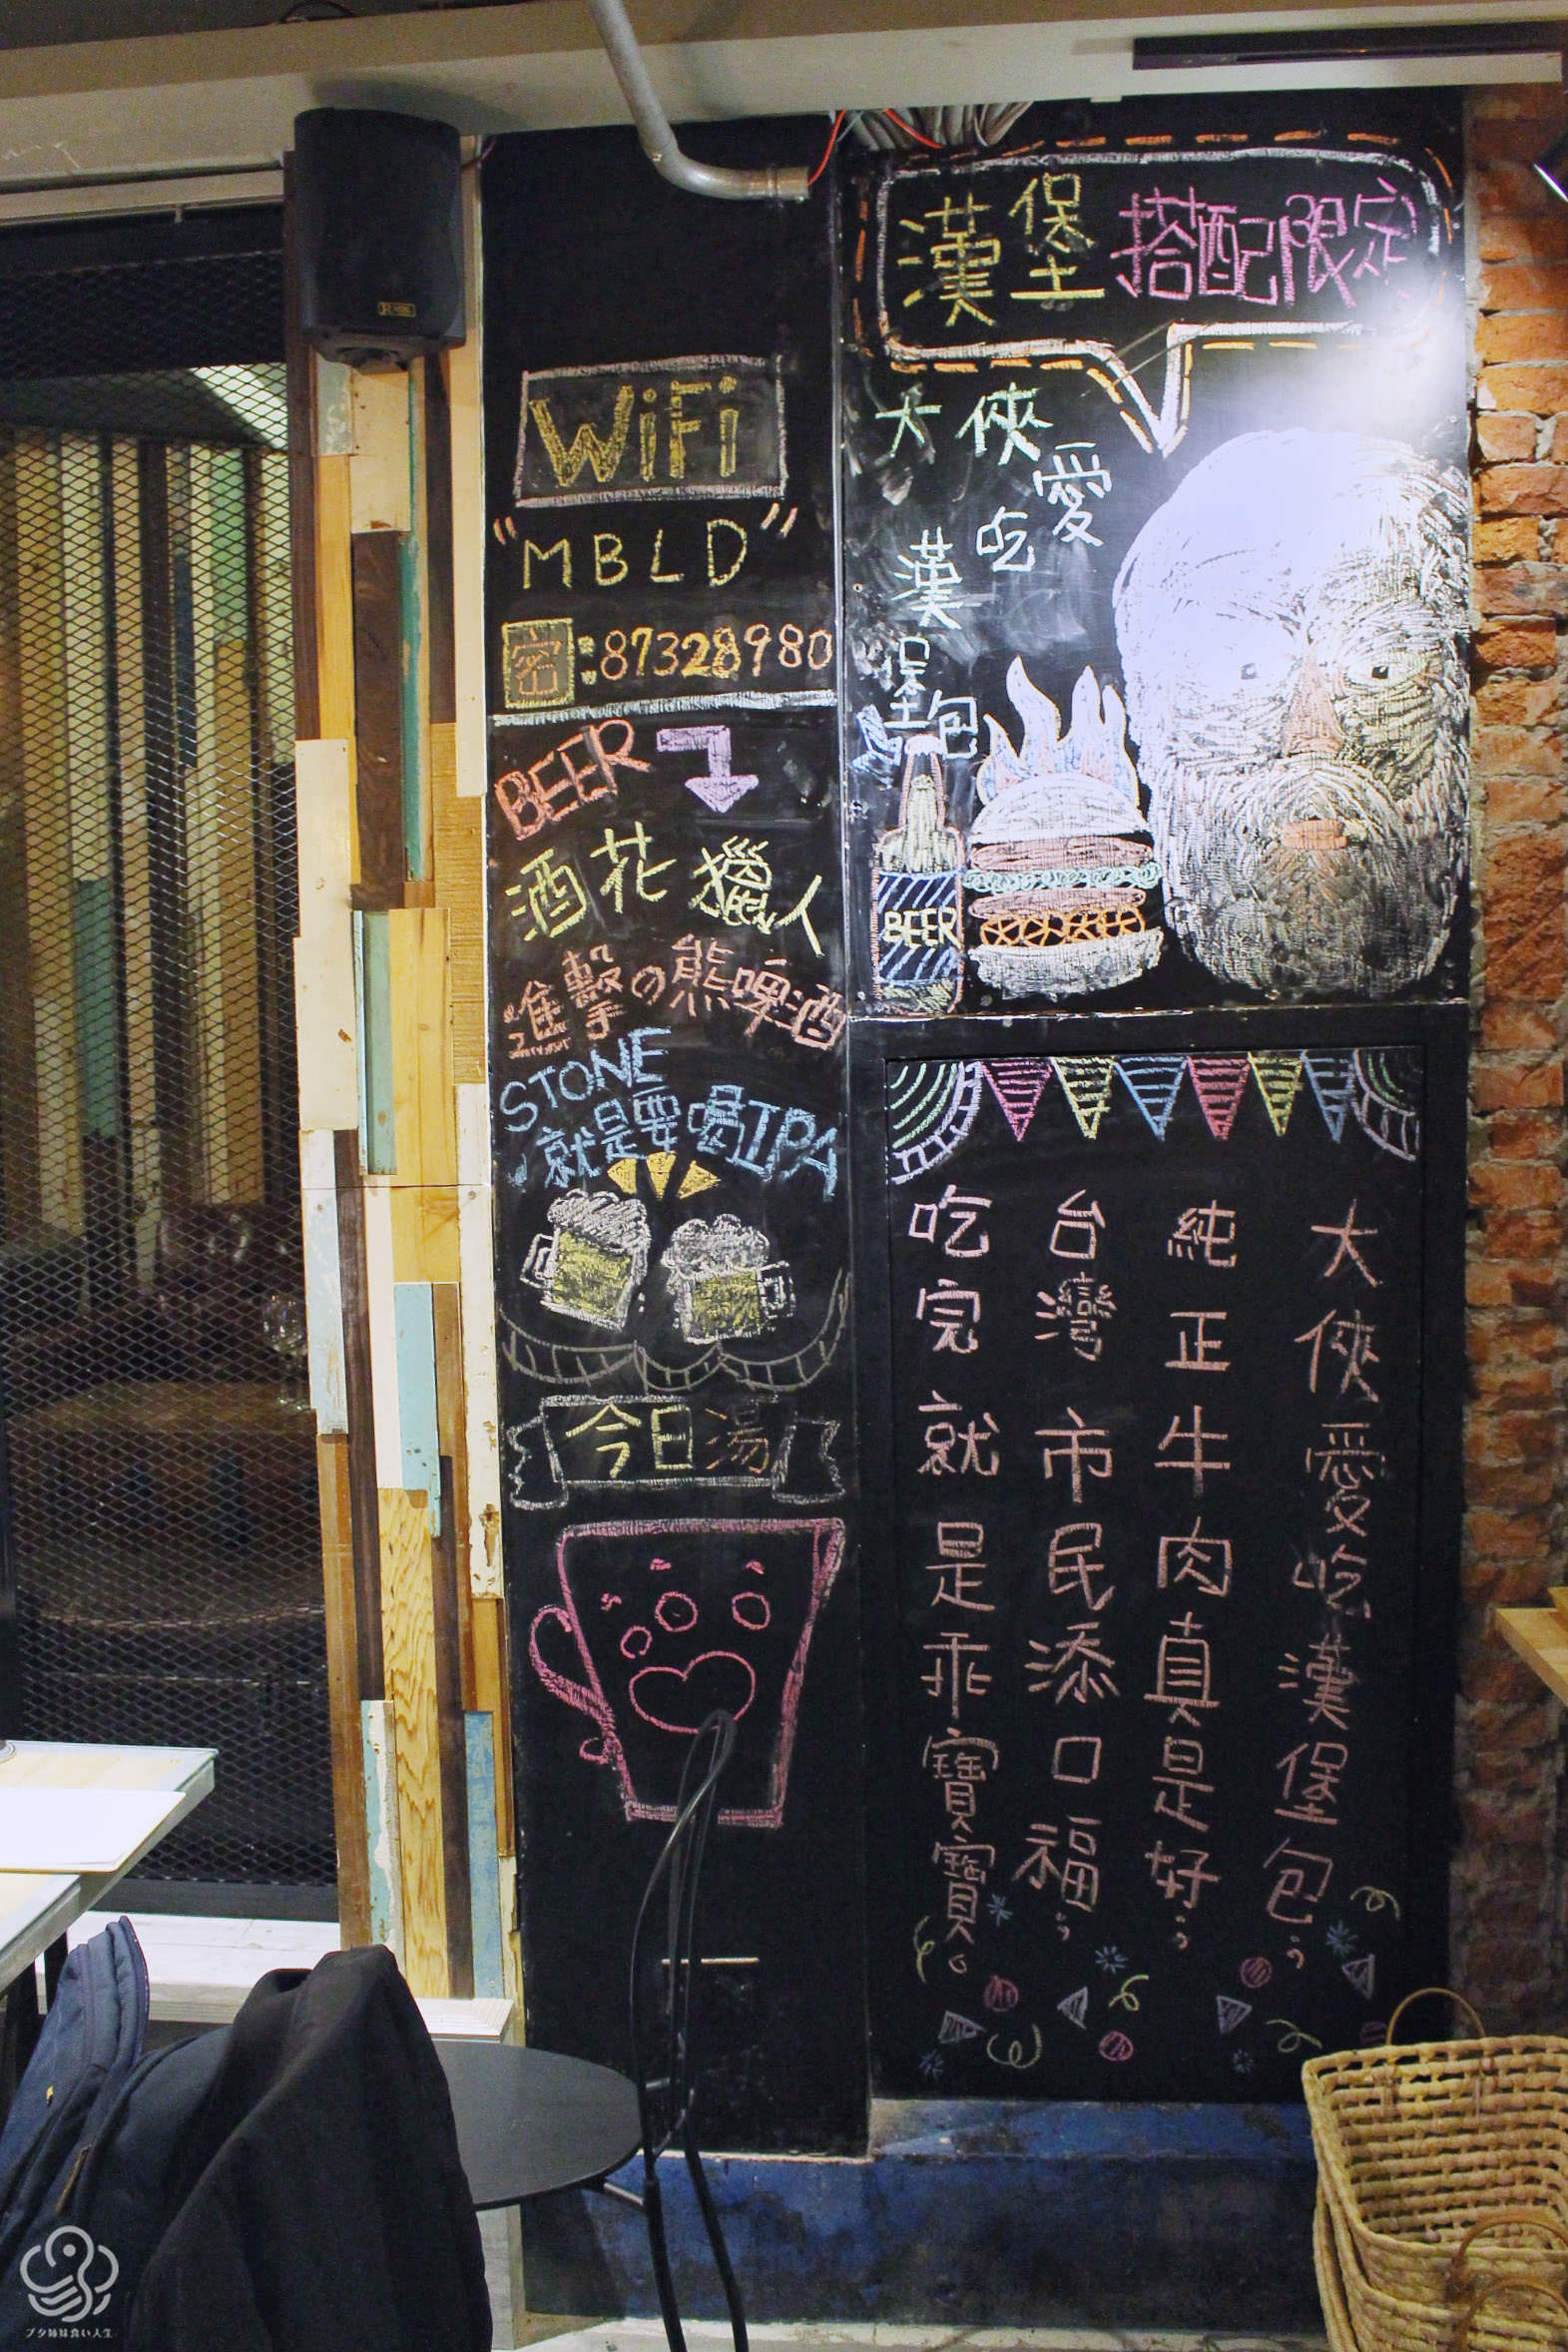 WiFi
"MBLD"
密:87328980
BEER
酒花獵人
進擊の熊啤酒
STONE
就是要喝IPA
今日湯
漢堡搭配限定
大俠愛吃漢堡包
BEER
大俠愛吃漢堡包，
純正牛肉真是好，
台灣市民添口福，
吃完就是乖寶寶。